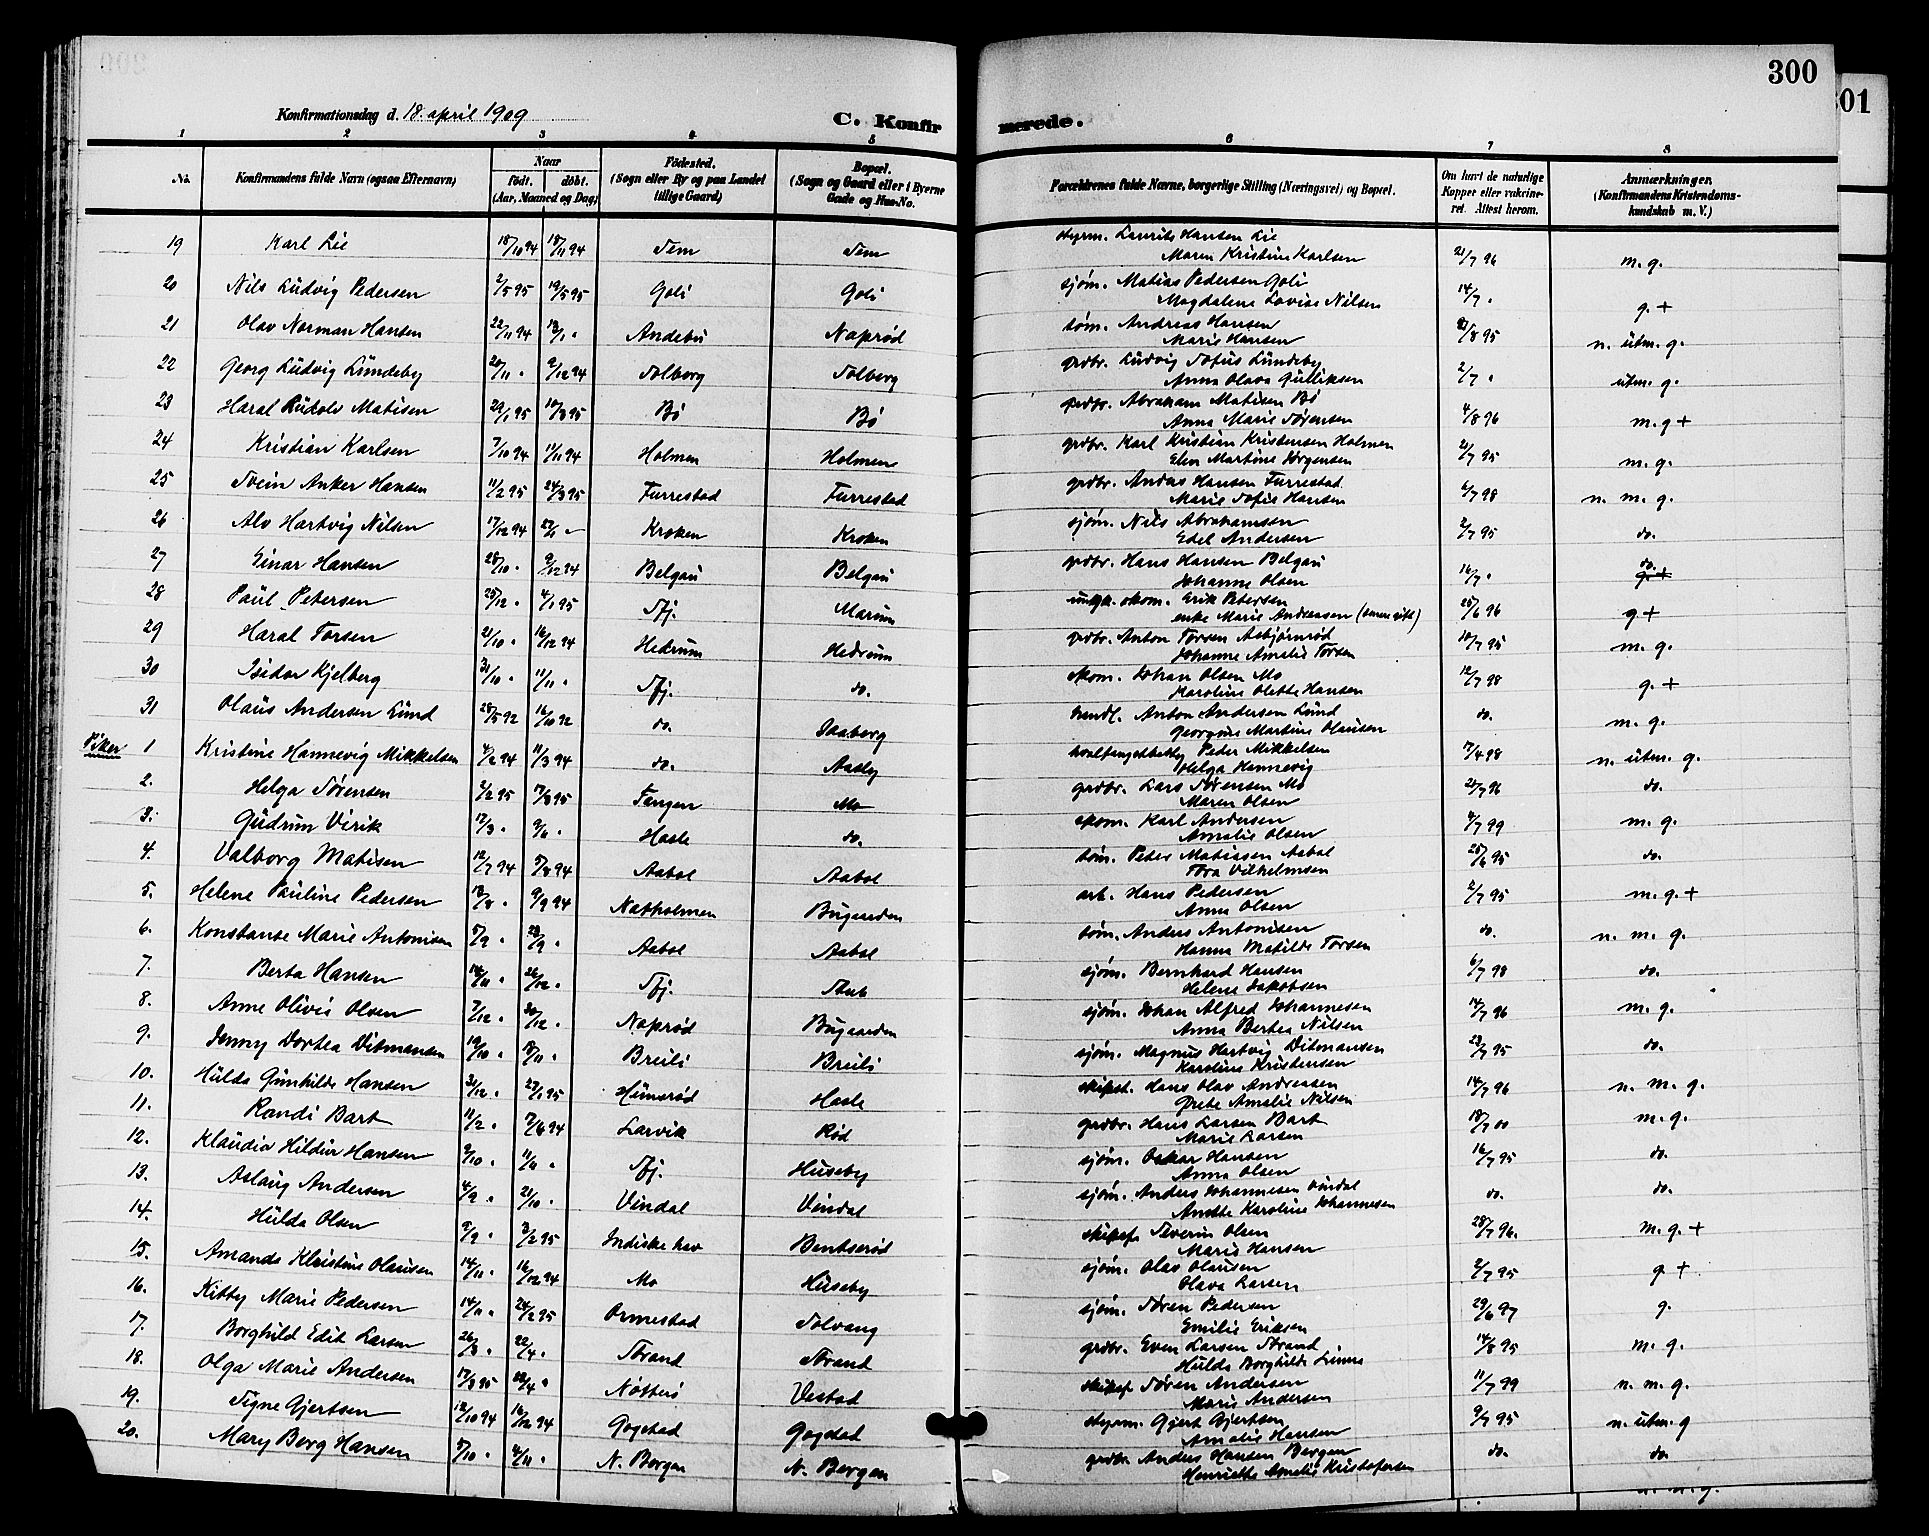 300
301
Konfirmationsdag d. 18. april 1909
C. Konfirmerede.
1 2 3 4 5 6 7 8
No. Konfirmandens fulde Navn (ogsaa Efternavn) Naar født. døbt. (Aar, Maaned og Dag) Fødested. (Sogn eller By og paa Landet tillige Gaard) Bopæl. (Sogn og Gaard eller i Byerne Gade og Hus-No. Forældrenes fulde Navne, borgerlige Stilling (Næringsvei) og Bopæl. Om havt de naturlige Kopper eller vakcineret. Attest herom. Anmærkninger. (Konfirmandens Kristendomskundskab m. V.)
19 Karl Lie 18/10 94 18/11 94 Sem Sem styrm. Laurits Hansen Lie
Maren Kristine Karlsen 21/7 96 m. g.
20 Nils Ludvig Pedersen 2/5 95 19/5 95 Goli Goli sjøm. Matias Pedersen Goli
Magdalene Lovise Nilsen 14/7 " g. +
21 Olav Norman Hansen 22/11 94 13/1 " Andebu Naprød tøm. Andreas Hansen
Marie Hansen /8 95 n. utm. g.
22 Georg Ludvig Lundeby 20/11 " 9/12 94 Solberg Solberg grdbr. Ludvig Sofus Lundeby
Anna Olava Gulliksen 2/7 " utm. g.
23 Haral Rudolv Matisen 29/1 95 10/3 95 Bø Bø grdbr. Abraham Matisen Bø
Anna Marie Sørensen 4/8 96 m. g +
24 Kristian Karlsen 7/10 94 11/11 94 Holmen Holmen grdbr. Karl Kristian Kristensen Holmen
Elen Martine Jørgensen 2/7 95 m. g.
25 Svein Anker Hansen 11/2 95 24/3 95 Furrestad Furrestad grdbr. Anders Hansen Furrestad
Marie Sofie Hansen 6/7 98 n. m. g.
26 Alv Hartvig Nilsen 17/12 94 27/1 - Kroken Kroken sjøm. Nils Abrahamsen
Edel Andersen 2/7 95 do.
27 Einar Hansen 28/10 " 9/12 94 Belgau Belgau grdbr. Hans Hansen Belgau
Johanne Olsen 16/7 " do. g. +
28 Paul Petersen 25/12 " 4/1 95 Sfj. Marum skom. Erik Petersen
enke Marie Andreassen 25/6 96 g +
29 Haral Torsen 21/10 " 16/12 94 Hedrum Hedrum grdbr. Anton Torsen Asbjørnrød
Johanne Amalie Torsen 10/7 95 m. g.
30 Isidor Kjelberg 31/10 " 11/11 " Sfj. do. skom. Johan Olsen Mo
Karoline Olette Hansen 12/7 98 g. +
31 Olaus Andersen Lund 28/5 92 16/10 92 do. Saaberg handl. Anton Andersen Lund
Georgine Martine Olausen do. m. g.
Piker 1 Kristine Hannevig Mikkelsen 4/2 94 11/3 94 do. Aasly hvalfangstbesty Peder Mikkelsen
Helga Hannevig 17/4 98 n. utm. g.
2. Helga Sørensen 2/2 95 17/3 95 Tangen Mo grdbr. Lars Sørensen Mo
Maren Olsen 21/7 96 do.
3. Gudrun Virik 17/3 " 9/6 " Hasle do. skom. Karl Andersen
Amalie Olsen 4/7 99 m. g.
4. Valborg Matisen 12/7 94 5/8 94 Aabol Aabol tøm. Peter Matiassen Aabol
Tora Vilhelmsen 25/6 95 do.
5. Helene Pauline Pedersen 13/8 " 9/9 94 Natholmen Bugaarden arb. Hans Pedersen
Anna Olsen 2/7 95 m. g. +
6. Konstanse Marie Antonisen 5/9 " 23/9 " Aabol Aabol tøm. Anders Antonisen
Hanna Matilde Torsen do. n. m. g.
7. Berta Hansen 14/11 " 26/12 " Sfj. Stub sjøm. Bernhard Hansen
Helene Jakobsen 6/7 98 do.
8. Anne Olivie Olsen 7/12 " 30/12 " Naprød Bugaarden sjøm. Johan Alfred Johannesen
Anna Bertea Nilsen 14/7 96 m. g.
9. Jenny Dortea Ditmansen 19/10 " 18/11 " Breili Breili sjøm. Magnus Hartvig Ditmansen
Karoline Kristensen 23/7 95 do.
10. Hulda Gunhilde Hansen 31/12 " 27/1 95 Hunsrød Hasle skipst. Hans Olav Andreassen
Grete Amalie Nilsen 14/7 96 n. m. g.
11. Randi Bart 11/2 " 7/6 94 Larvik Rød grdbr. Hans Larsen Bart
Marie Larsen 18/7 00 m. g.
12. Klaudia Hildur Hansen 9/10 " 11/11 " Sfj. Huseby sjøm. Oskar Hansen
Anna Olsen 16/7 95 do.
13. Aslaug Andersen 4/9 " 21/10 " Vindal Vindal sjøm. Anders Johannesen Vindal
Anette Karoline Johannesen do. do.
14. Hulda Olsen 9/9 " 3/2 95 Indiske hav Bentserød skipsf. Severin Olsen
Marie Hansen 28/7 96. m. g. +
15. Amanda Kristine Olausen 14/11 " 16/12 94 Mo Huseby sjøm. Olav Olausen
Olava Larsen 2/7 95 g. +
16. Kitty Marie Pedersen 14/11 " 24/2 95 Ormestad Solvang sjøm. Søren Pedersen
Emilie Eriksen 29/6 97 g.
17. Borghild Edit Larsen 26/3 " 22/4 " Strand Strand grdbr. Even Larsen Strand
Hulda Borghilde 14/8 95 m. g.
18. Olga Marie Andersen 17/3 95 /4 " Nøtterø Vestad skipsf Søren Andersen
Marie Andersen 11/7 99 n. m. g.
19. Signe Gjertsen 12/10 94 16/12 94 Gogstad Gogstad styrm. Gjert Gjertsen
Amalie Hansen 9/7 95 n. utm. g
20. Mary Berg Hansen 5/10 " 4/11 " N. Bergan N. Bergan grdbr. Anders Hansen Bergan
Henriette Amelie Kristofersen do. do.